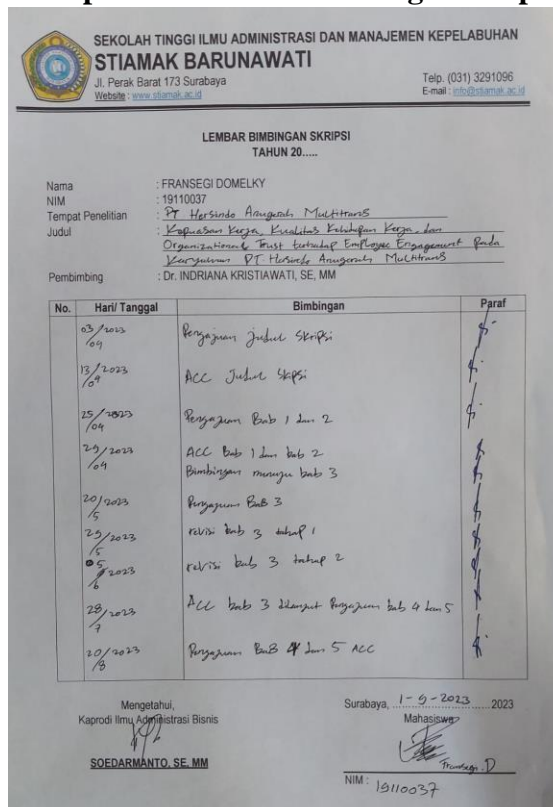 SEKOLAH TINGGI ILMU ADMINISTRASI DAN MANAJEMEN KEPELABUHAN
STIAMAK BARUNAWATI
Jl. Perak Barat 173 Surabaya
Telp. (031) 3291096
Website : www.stiamak.ac.id
E-mail : info@stiamak.ac.id
LEMBAR BIMBINGAN SKRIPSI
TAHUN 20.....
Nama : FRANSEGI DOMELKY
NIM : 19110037
Tempat Penelitian : PT Hersindo Anugerah Multitrans
Judul : Kepuasan Kerja, Kualitas Kehidupan Kerja, dan
Organizational Trust terhadap Employee Engagement pada
Karyawan PT Hersindo Anugerah Multitrans
Pembimbing : Dr. INDRIANA KRISTIAWATI, SE, MM
No. Hari/ Tanggal Bimbingan Paraf
03/2023/04 Pengajuan judul Skripsi
13/2023/04 ACC Judul Skipsi
25/2023/04 Pengajuan Bab 1 dan 2
29/2023/04 ACC Bab 1 dan bab 2
Bimbingan menuju bab 3
20/2023/5 Pengajuan BaB 3
29/2023/5 revisi bab 3 tahap 1
05/2023/6 revisi bab 3 tahap 2
28/2023/7 ACC bab 3 dilanjut Pengajuan bab 4 dan 5
20/2023/8 Pengajuan BaB 4 dan 5 ACC
Mengetahui,
Kaprodi Ilmu Administrasi Bisnis
SOEDARMANTO, SE. MM
Surabaya, 1-9-2023 2023
Mahasiswa
Fransegi .D
NIM : 19110037